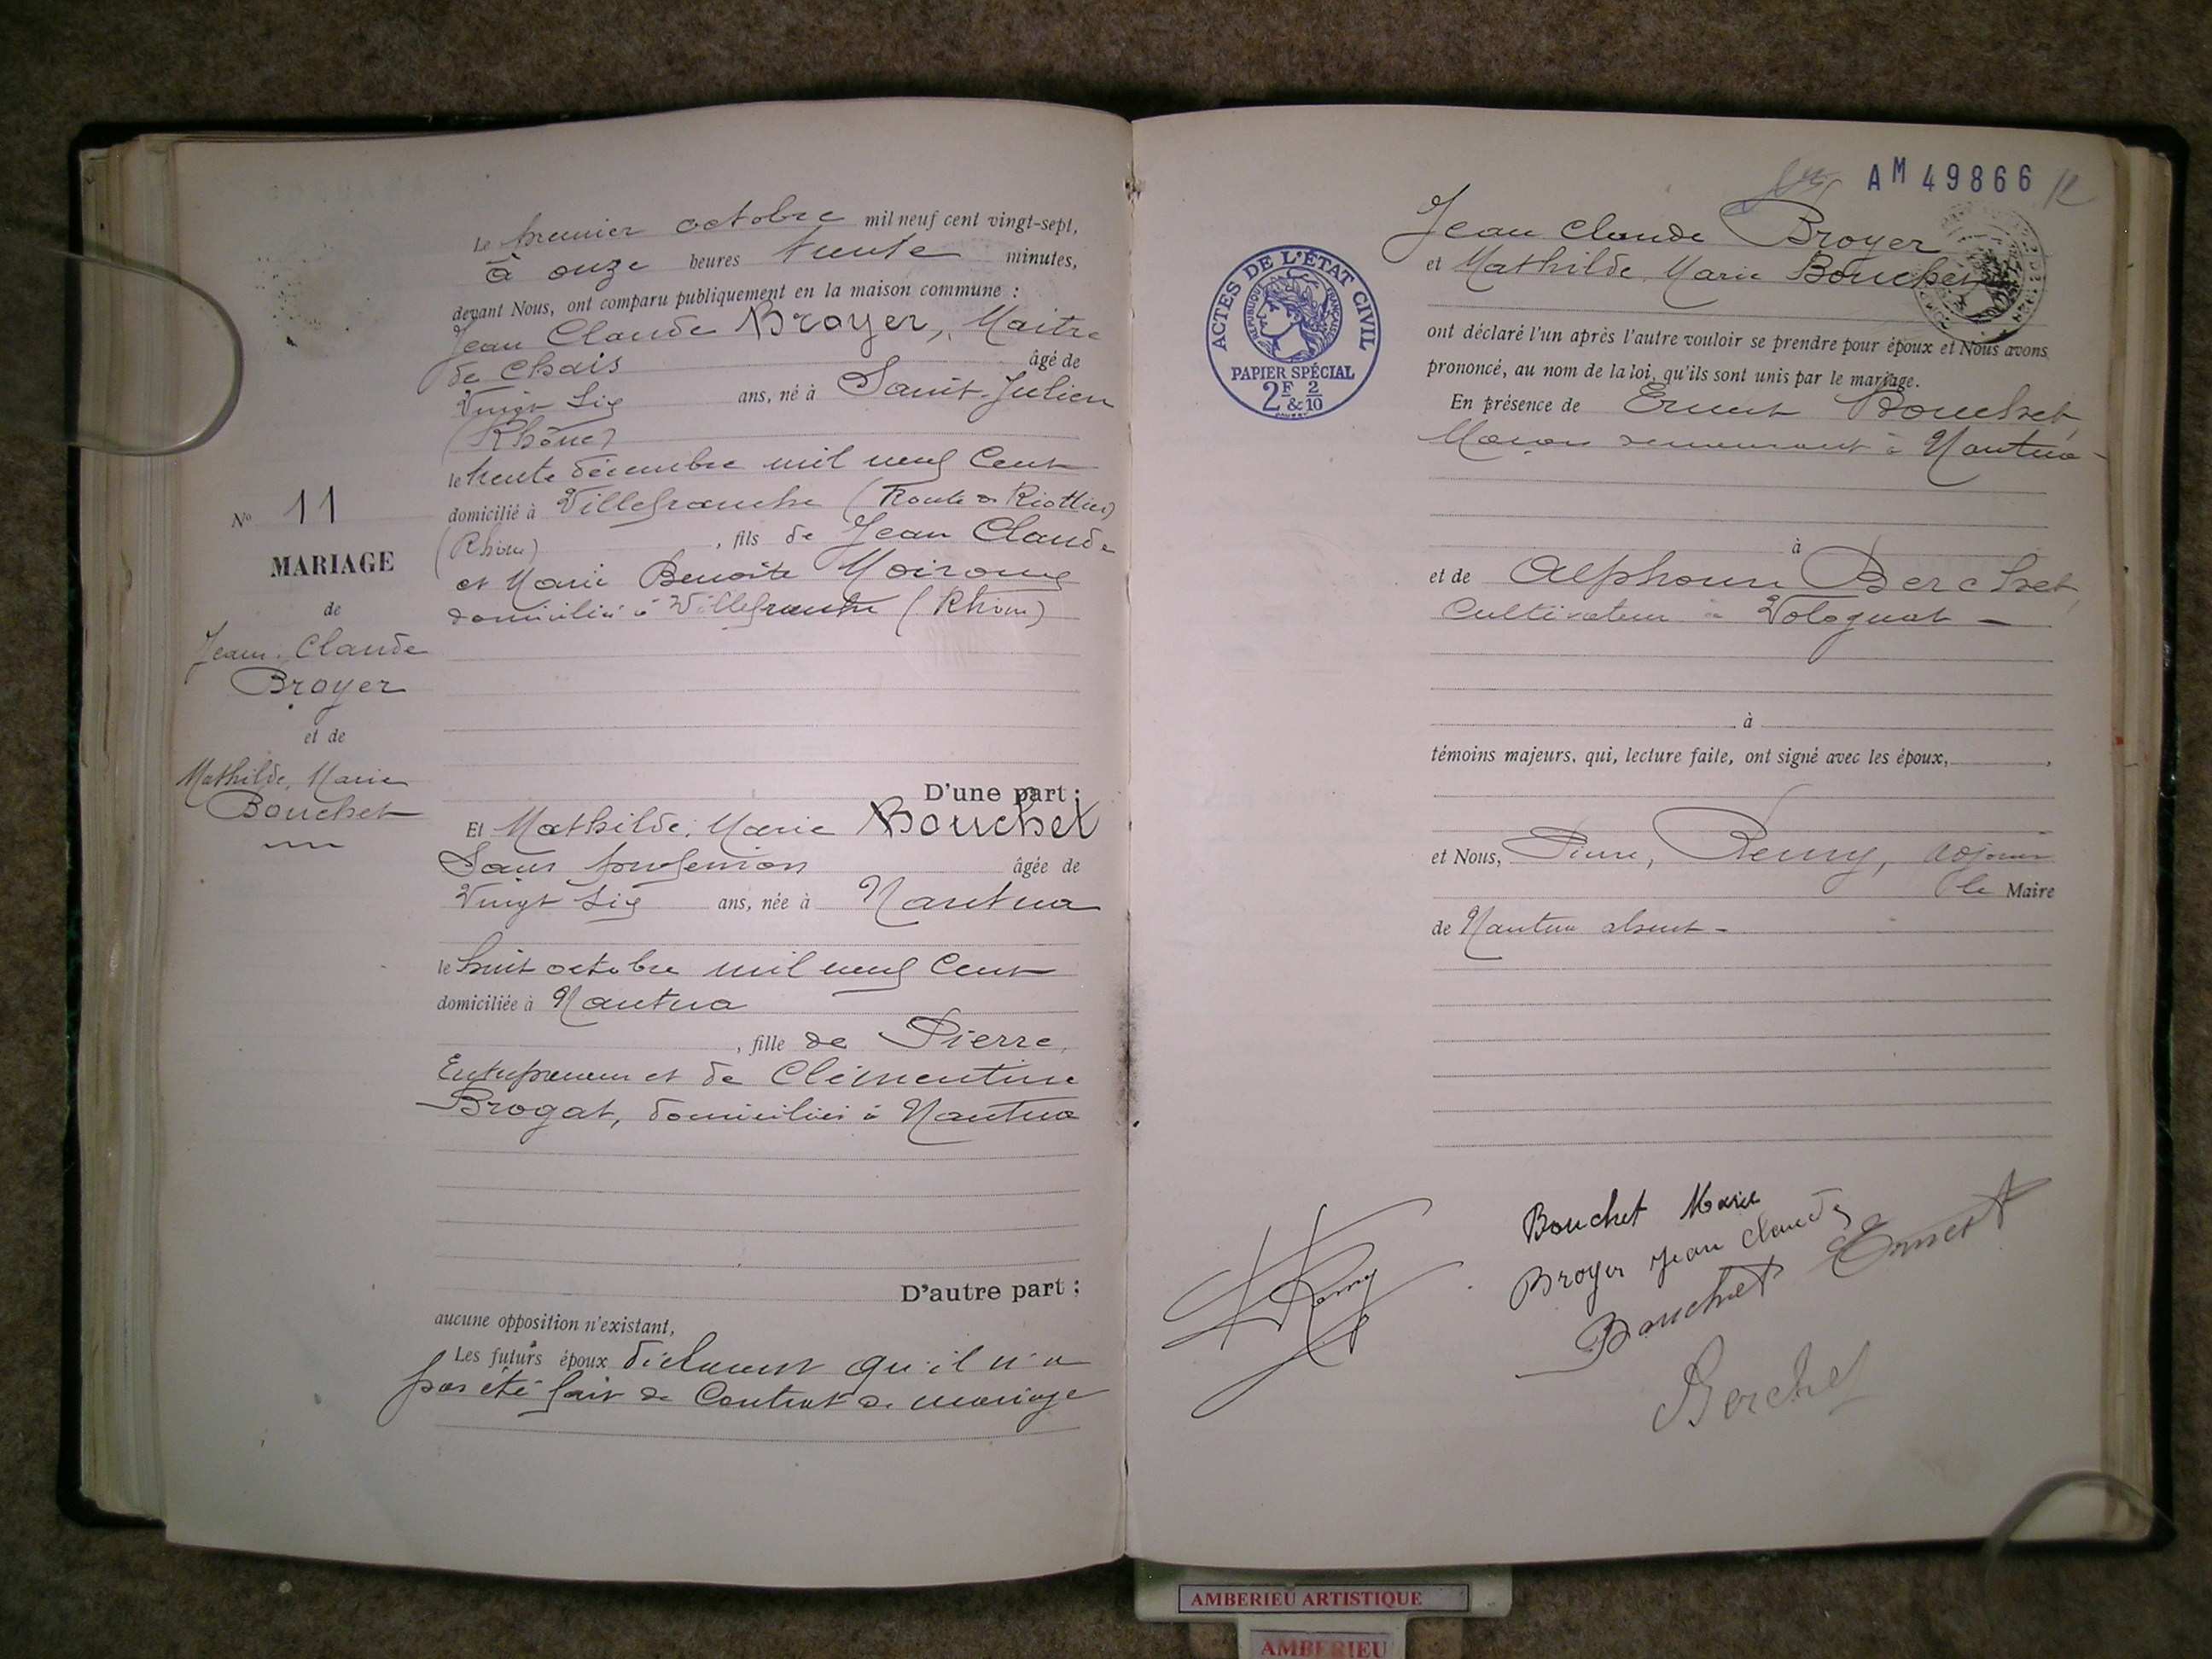 Le premier octobre mil neuf cent vingt-sept,
à onze heures trente minutes,
devant Nous, ont comparu publiquement en la maison commune :
Jean Claude Broyer, Maitre
de Chais âgé de
Vingt Six ans, né à Saint-Julien
(Rhône)
le trente décembre mil neuf Cent
domicilié à Villefranche (Route de Riottier)
(Rhône) , fils de Jean Claude
et Marie Benoite
domiciliés à Villefranche (Rhône)
D'une part ;
N° 11
MARIAGE
de
Jean. Claude
Broyer
et de
Mathilde, Marie
Bouchet
Et Mathilde, Marie Bouchet
Sans profession âgée de
Vingt Six ans, née à Nantua
le huit octobre mil neuf Cent
domiciliée à Nantua
, fille de Pierre,
Entrepreneur et de Clémentine
Brogat, domiciliés à Nantua
D'autre part ;
aucune opposition n'existant,
Les futurs époux déclarent qu'il n'a
pas été fait de Contrat de mariage
AM 49866
12
ACTES DE L'ÉTAT CIVIL
RÉPUBLIQUE FRANÇAISE
PAPIER SPÉCIAL
2F & 2/10
Jean Claude Broyer
et Mathilde, Marie Bouchet
ont déclaré l'un après l'autre vouloir se prendre pour époux et Nous avons
prononcé, au nom de la loi, qu'ils sont unis par le mariage.
En présence de Ernest Bouchet,
Maçon demeurant à Nantua -
à
et de Alphonse Berchet,
Cultivateur à Volognat -
à
témoins majeurs, qui, lecture faite, ont signé avec les époux, ,
et Nous, Pierre, Remy, adjoint
le Maire
de Nantua absent -
Bouchet Marie
Broyer Jean Claude
Bouchet Ernest
Remy
Berchet
AMBERIEU ARTISTIQUE
AMBERIEU